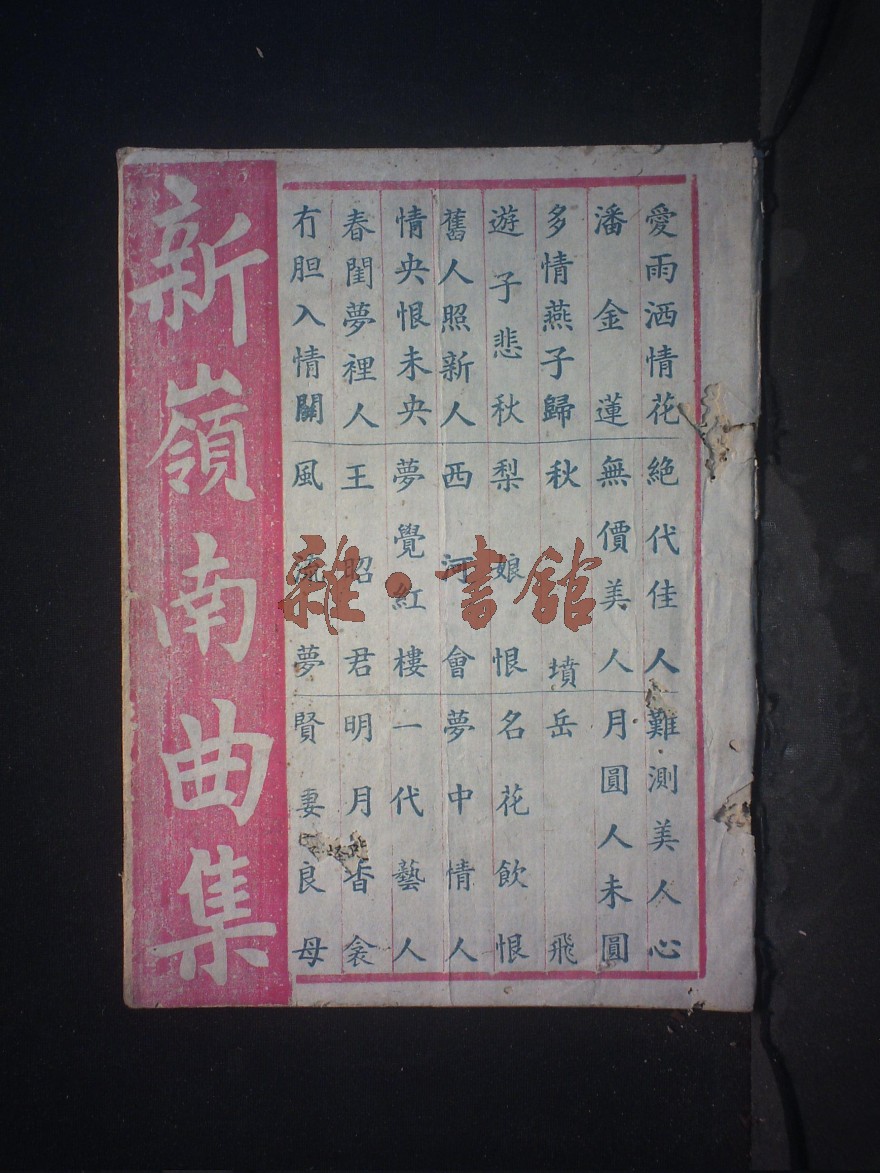 新嶺南曲集
愛雨洒情花 絶代佳人 難測美人心
潘金蓮 無價美人 月圓人未圓
多情燕子歸 秋墳 岳飛
遊子悲秋 梨娘恨 名花飲恨
舊人照新人 西河會 夢中情人
情央恨未央 夢覺紅樓 一代藝人
春閨夢裡人 王昭君 明月香衾
冇胆入情關 風流夢 賢妻良母
雜·書館